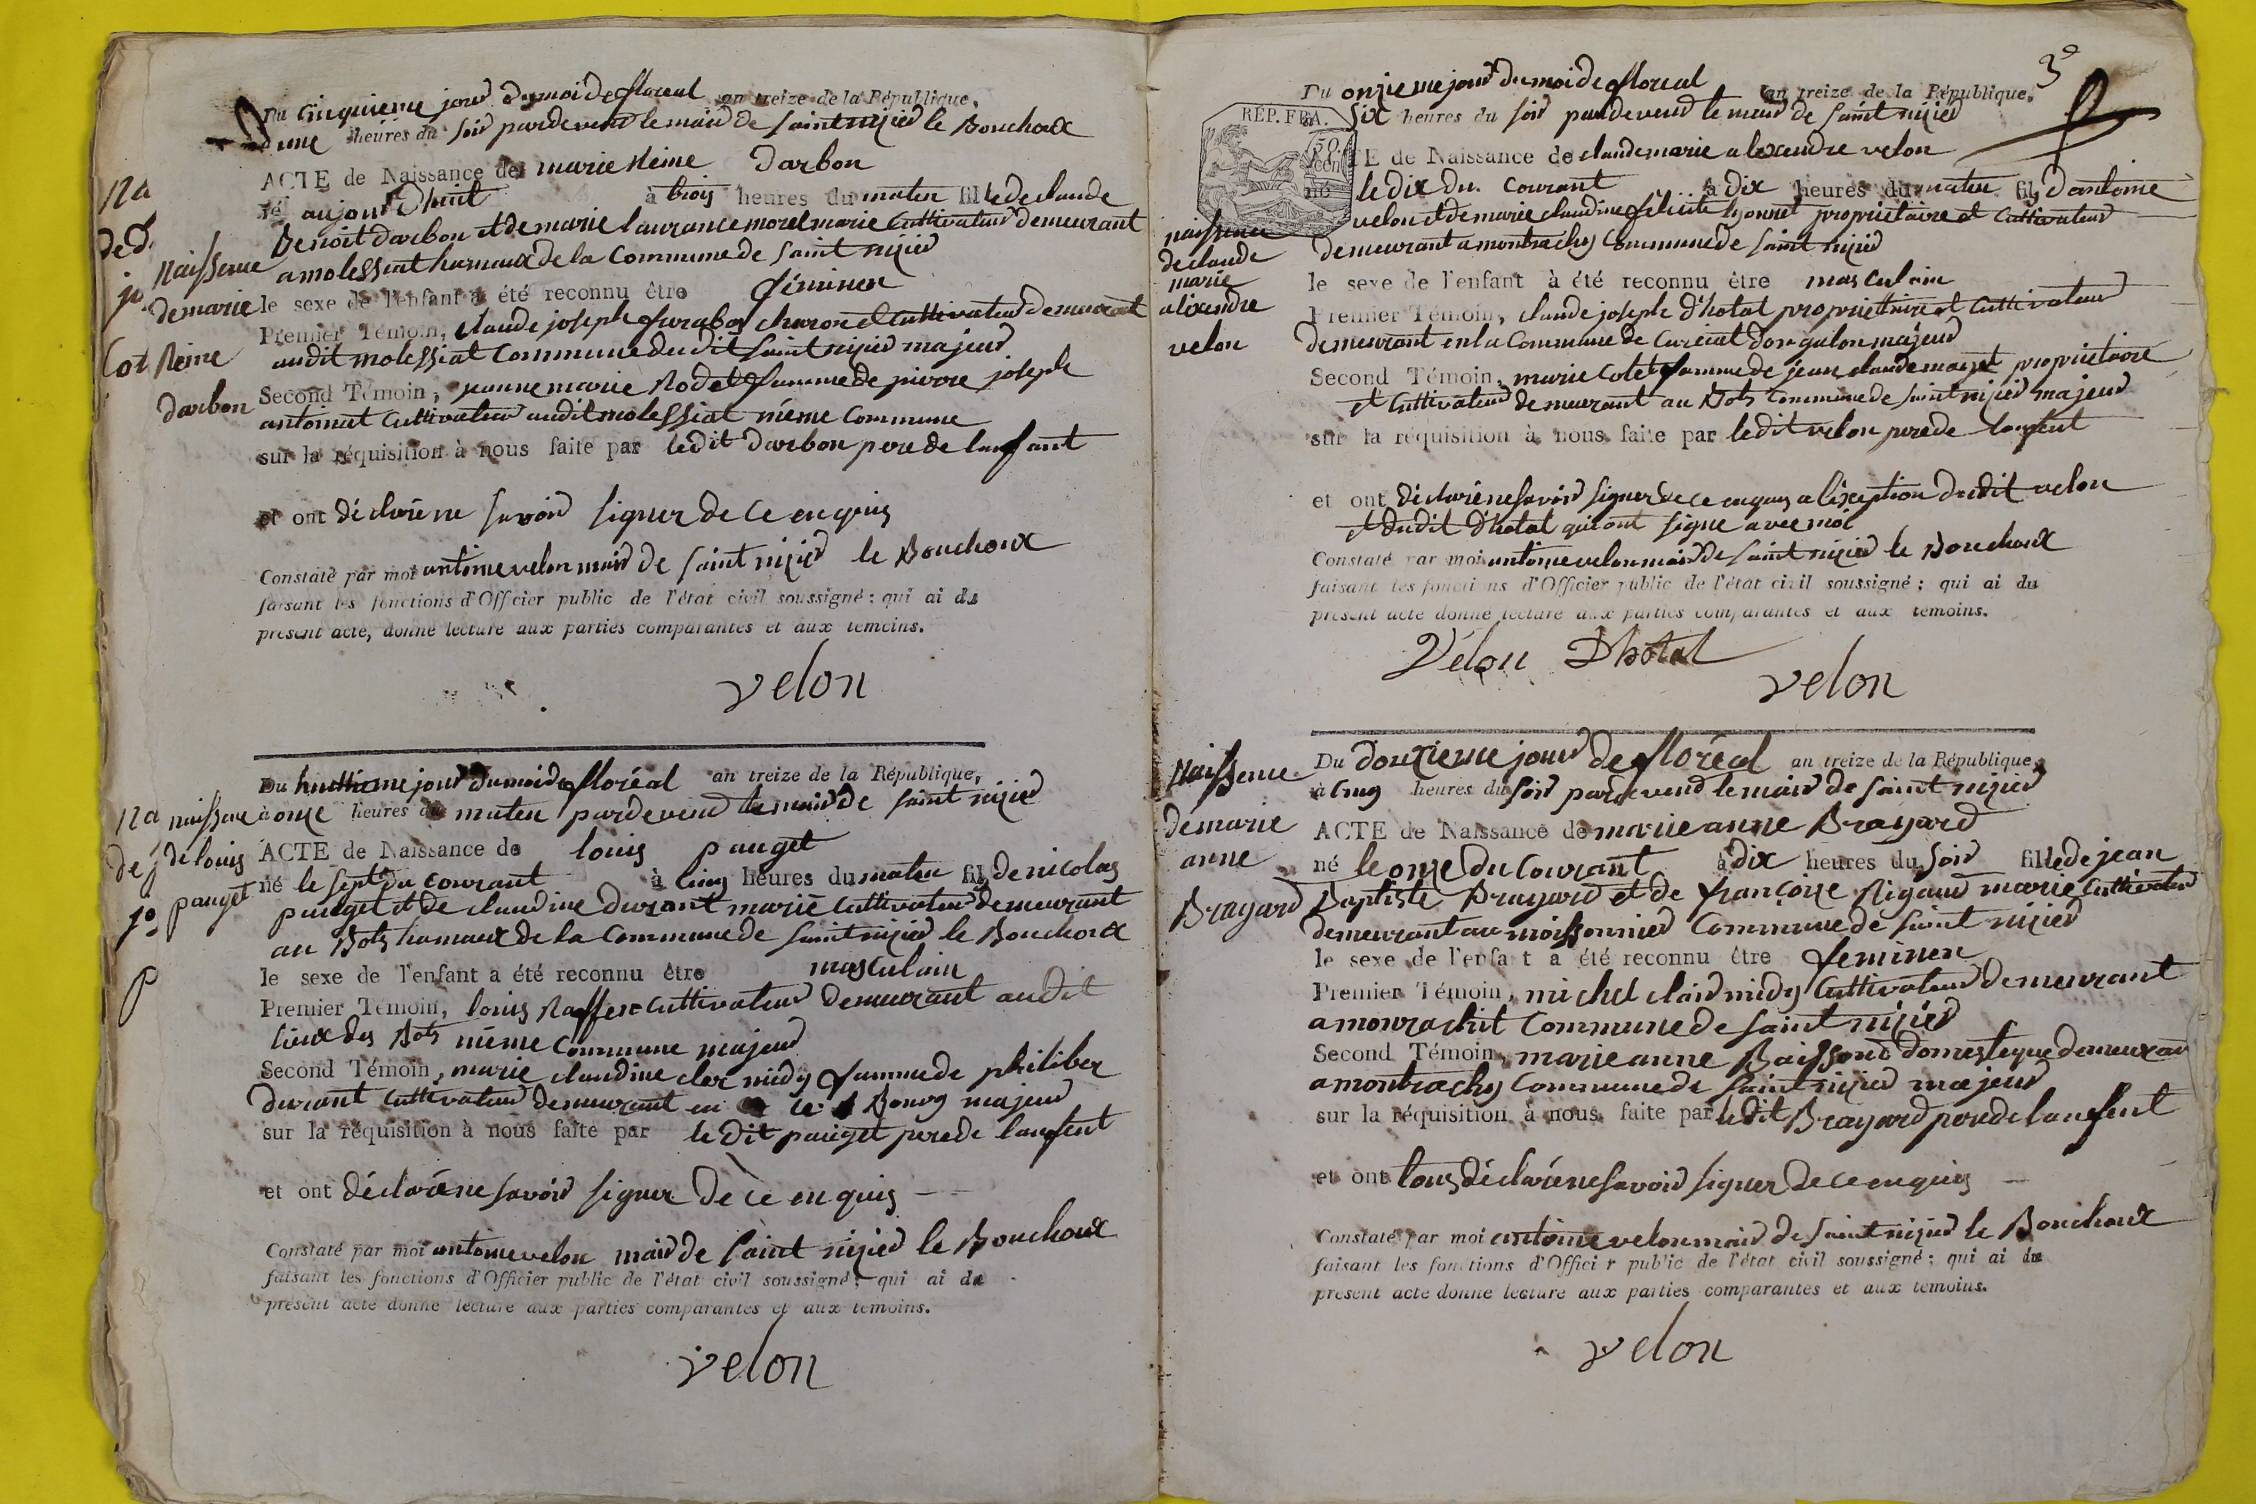 Du cinquieme jour du moi de floreal an treize de la République,
d'une heures du soir pardevend le maire de saint nizier le Bouchoux
ACTE de Naissance de marie Reine darbon
né aujourd'huit à trois heures du matin fille de claude
Benoit darbon et de marie laurance morel marie Cultivateur demeurant
a molessiat hamaux de la Commune de saint nizier
le sexe de l'enfant a été reconnu être féminen
Premier Témoin, claude joseph charon et Cultivateur demeurant
audit molessiat Commune dudit saint nizier majeur
Second Témoin, jeanne marie Rodet famme de pierre joseph
antoinat Cultivateur audit molessiat même Commune
sur la réquisition à nous faite par ledit darbon pere de lanfant
et ont déclaré ne savoir signer de ce enquis
Constaté par moi antoine velon mair de saint nizier le Bouchoux
faisant les fonctions d'Officier public de l'état civil soussigné; qui ai du
présent acte, donné lecture aux parties comparantes et aux témoins.
velon
Na
de d.
jo
Cot
Naissence
de marie
Reine
darbon
Du huittieme jour du moi de floréal an treize de la République,
à onze heures du maten pardevend le mair de saint nizier
ACTE de Naissance de louis pauget
né le sept du courant à cinq heures du maten fils de nicolas
pauget et de claudine durant marié Cultivateur demeurant
au Bots hamaux de la Commune de saint nizier le Bouchoux
le sexe de l'enfant a été reconnu être masculain
Premier Témoin, louis Raffer Cultivateur demeurant audit
lieux des Bots même Commune majeur
Second Témoin, marie claudine clermidy famme de philiber
durant Cultivateur demeurant en majeur
sur la réquisition à nous faite par le dit pauget pere de lanfent
et ont déclaré ne savoir signer de ce enquis
Constaté par moi antoine velon mair de saint nizier le Bouchoux
faisant les fonctions d'Officier public de l'état civil soussigné; qui ai du
présent acte donné lecture aux parties comparantes et aux témoins.
velon
Na
de j
jo
P
naissence
de louis
pauget
3e
Du onzieme jour du moi de floreal an treize de la République,
six heures du soir pardevend le maire de saint nizier
RÉP. FRA.
ACTE de Naissance de claude marie alexendre velon
né le dix du courant à dix heures du maten fils d'antoine
velon et de marie claudine felicite proprietaire et Cultivateur
demeurant a montrachy Commune de saint nizier
le sexe de l'enfant à été reconnu être masculain
Premier Témoin, claude joseph d'hotal propriettaire et Cultivateur
demeurant en la Commune de Curciat dongalon majeur
Second Témoin, marie Cotet famme de jean claude propriétaire
et Cultivateur demeurant au Bots Commune de saint nizier majeur
sur la réquisition à nous faite par ledit velon pere de lanfent
et ont déclaré ne savoir signer de ce enquis a léxception dudit velon
et dudit d'hotal qui ont signe avec moi
Constaté par moi antoine velon mair de saint nizier le Bouchoux
faisant les fonctions d'Officier public de l'état civil soussigné; qui ai du
présent acte donné lecture aux parties comparantes et aux témoins.
Vélon Dhotal
velon
naissence
de claude
marie
alexendre
velon
Du douzieme jour de floréal an treize de la République,
à cinq heures du soir pardevend le mair de saint nizier
ACTE de Naissance de marie anne Brayard
né le onze du Courant à dix heures du soir fille de jean
Baptiste Brayard et de françoise Rigaud marié Cultivateur
demeurant au moissonnier Commune de saint nizier
le sexe de l'enfant a été reconnu être feminen
Premier Témoin, michel clairmidy Cultivateur demeurant
a montrachit Commune de saint nizier
Second Témoin, marie anne domesteque
a montrachy Commune de saint nizier majeur
sur la réquisition à nous faite par ledit Brayard pere de lanfent
et ont tous déclaré ne savoir signer de ce enquis
Constaté par moi antoine velon mair de saint nizier le Bouchoux
faisant les fonctions d'Officier public de l'état civil soussigné; qui ai du
présent acte donné lecture aux parties comparantes et aux témoins.
velon
Naissence
de marie
anne
Brayard